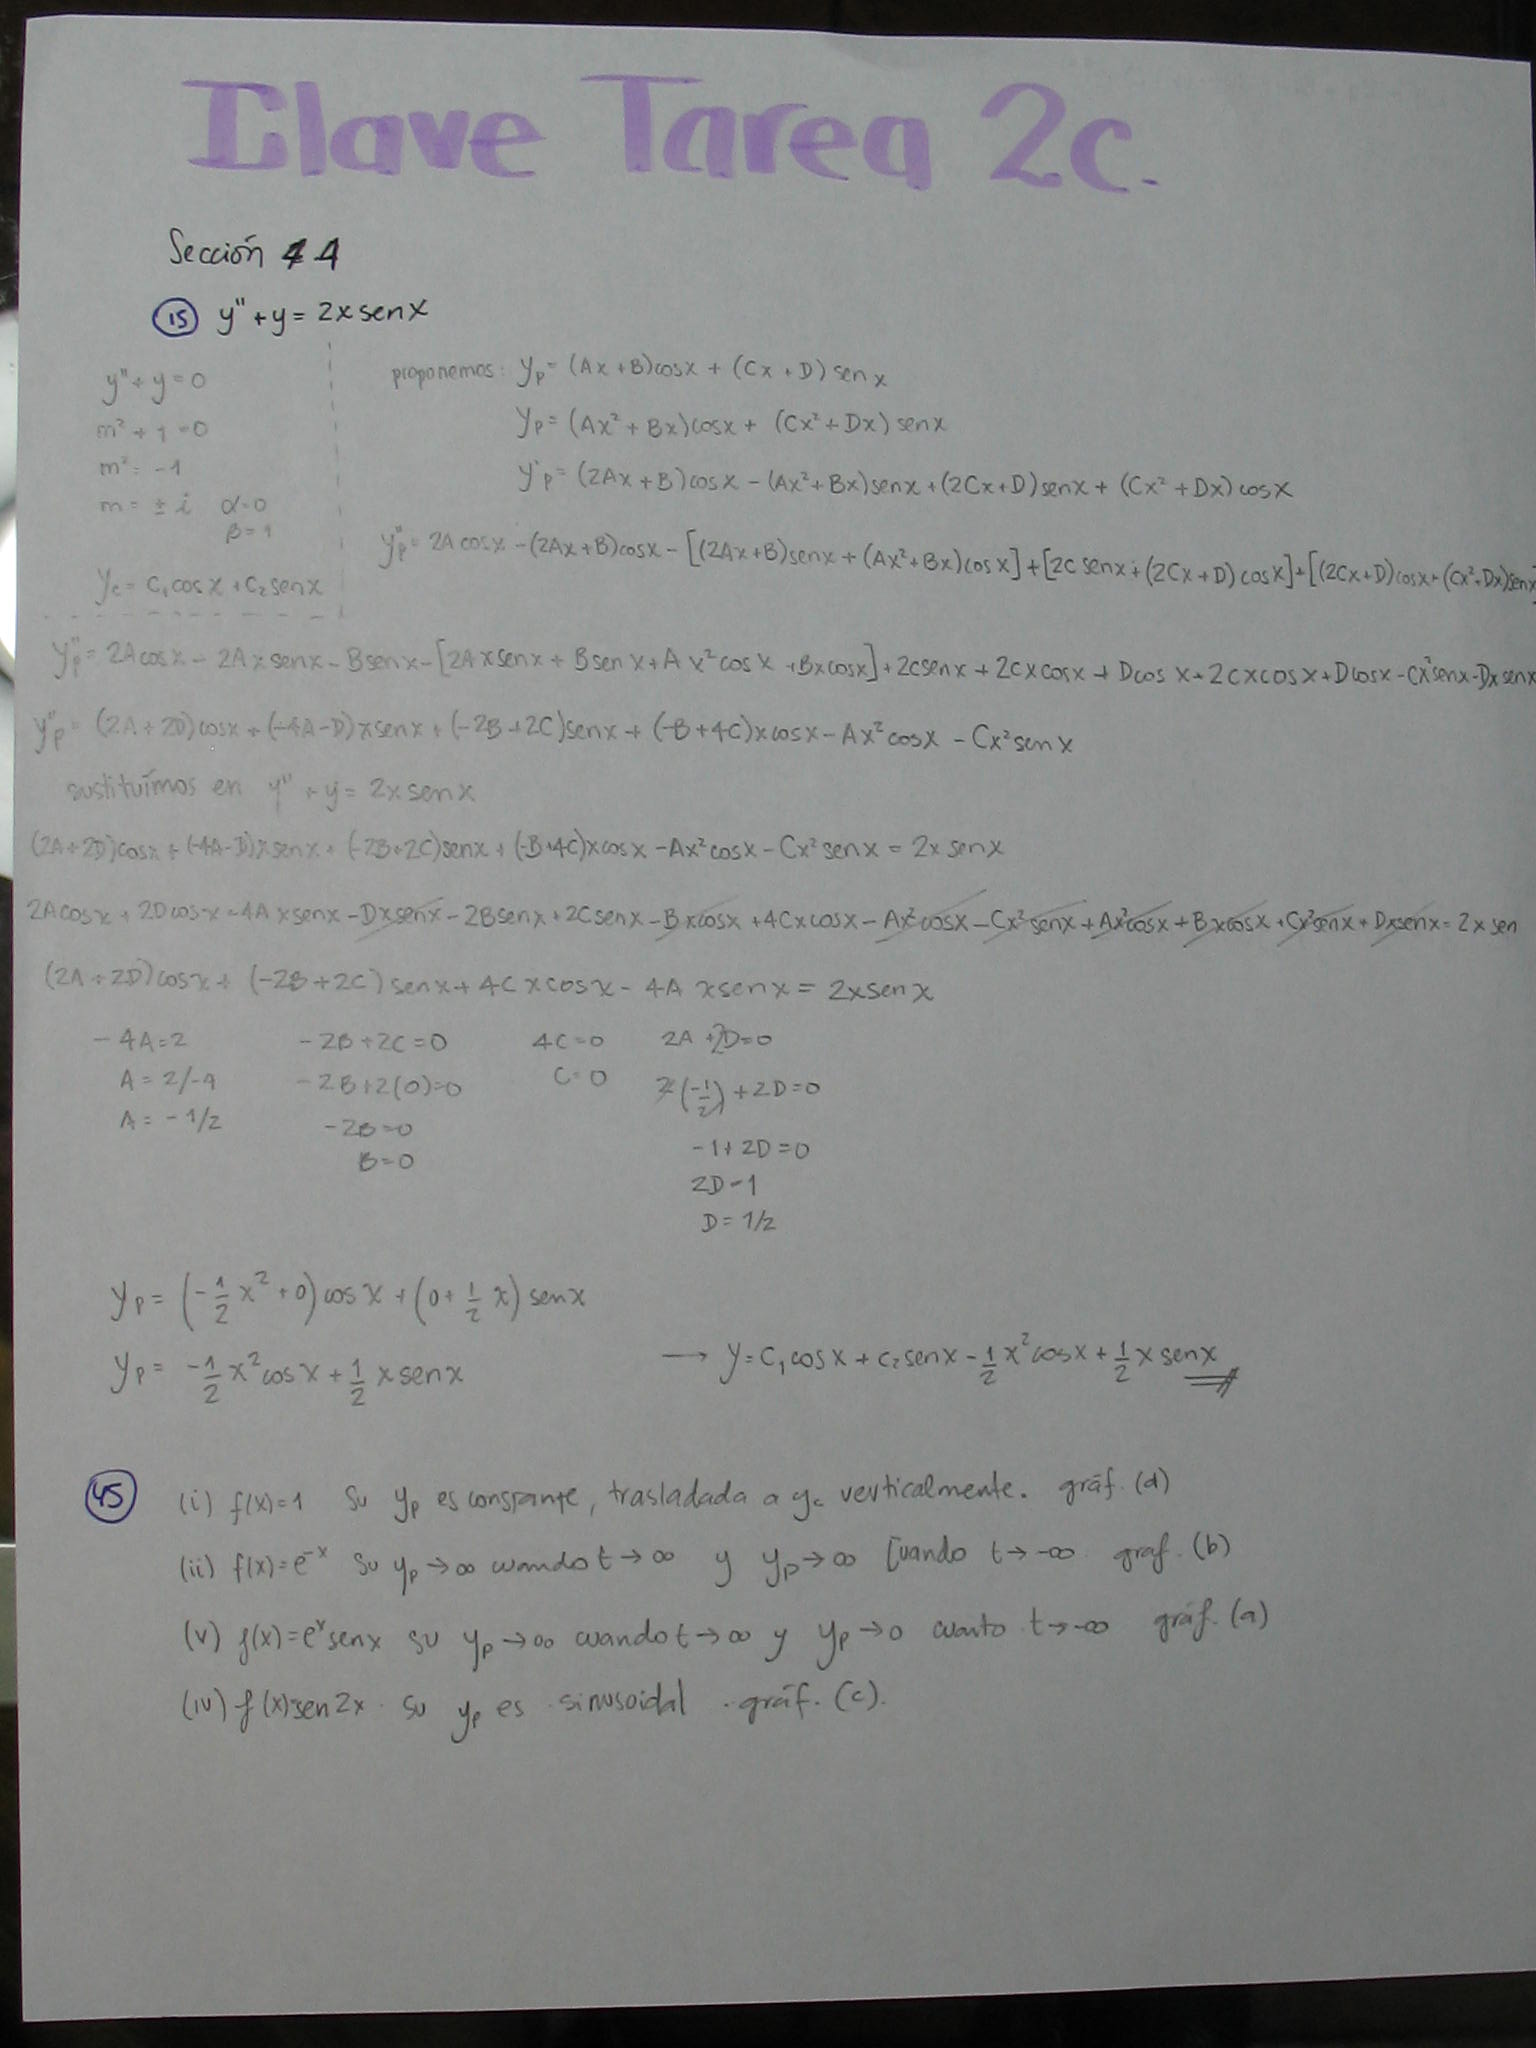 Clave Tarea 2c.
Sección 4 4
15 y'' + y = 2x sen x
y'' + y = 0
m² + 1 = 0
m² = -1
m = ± i α=0
β=1
yc = c₁ cos x + c₂ sen x
proponemos: yp = (Ax + B) cos x + (Cx + D) sen x
yp = (Ax² + Bx) cos x + (Cx² + Dx) sen x
y'p = (2Ax + B) cos x - (Ax² + Bx) sen x + (2Cx + D) sen x + (Cx² + Dx) cos x
y''p = 2A cos x - (2Ax + B) cos x - [(2Ax + B) sen x + (Ax² + Bx) cos x] + [2C sen x + (2Cx + D) cos x] + [(2Cx + D) cos x + (Cx² + Dx) sen x]
y''p = 2A cos x - 2Ax sen x - B sen x - [2Ax sen x + B sen x + Ax² cos x + Bx cos x] + 2C sen x + 2Cx cos x + D cos x + 2Cx cos x + D cos x - Cx² sen x - Dx sen x
y''p = (2A + 2D) cos x + (-4A - D) x sen x + (-2B + 2C) sen x + (-B + 4C) x cos x - Ax² cos x - Cx² sen x
sustituímos en y'' + y = 2x sen x
(2A + 2D) cos x + (-4A - D) x sen x + (-2B + 2C) sen x + (-B + 4C) x cos x - Ax² cos x - Cx² sen x = 2x sen x
2A cos x + 2D cos x - 4A x sen x - Dx sen x - 2B sen x + 2C sen x - Bx cos x + 4Cx cos x - Ax² cos x - Cx² sen x + Ax² cos x + Bx cos x + Cx² sen x + Dx sen x = 2x sen
(2A + 2D) cos x + (-2B + 2C) sen x + 4C x cos x - 4A x sen x = 2x sen x
-4A = 2 -2B + 2C = 0 4C = 0 2A + 2D = 0
A = 2/-4 -2B + 2(0) = 0 C = 0 2(-1/2) + 2D = 0
A = -1/2 -2B = 0 -1 + 2D = 0
B = 0 2D = 1
D = 1/2
yp = (-1/2 x² + 0) cos x + (0 + 1/2 x) sen x
yp = -1/2 x² cos x + 1/2 x sen x → y = c₁ cos x + c₂ sen x - 1/2 x² cos x + 1/2 x sen x
45 (i) f(x) = 1 su yp es constante, trasladada a yc verticalmente. gráf. (d)
(ii) f(x) = e⁻ˣ su yp → ∞ cuando t → ∞ y yp → ∞ cuando t → -∞ graf. (b)
(v) f(x) = eˣ sen x su yp → ∞ cuando t → ∞ y yp → 0 cuanto t → -∞ gráf. (a)
(iv) f(x) = sen 2x. su yp es sinusoidal. gráf. (c).